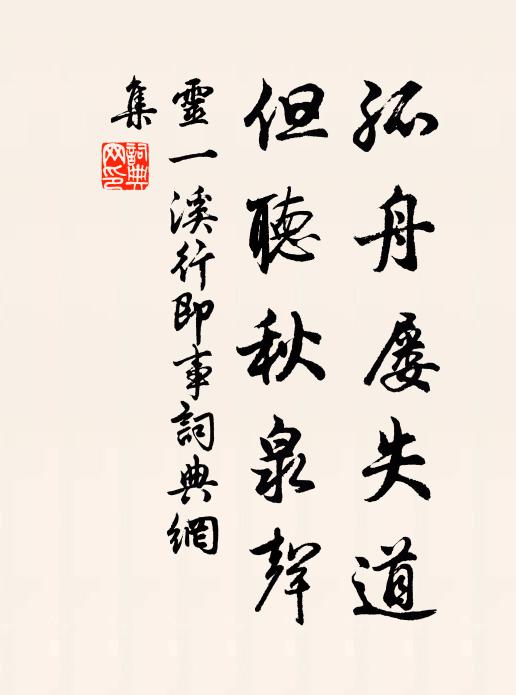 孤舟屡失道
但聽秋泉聲
靈一溪行即事詞典網
集
詞典
网印